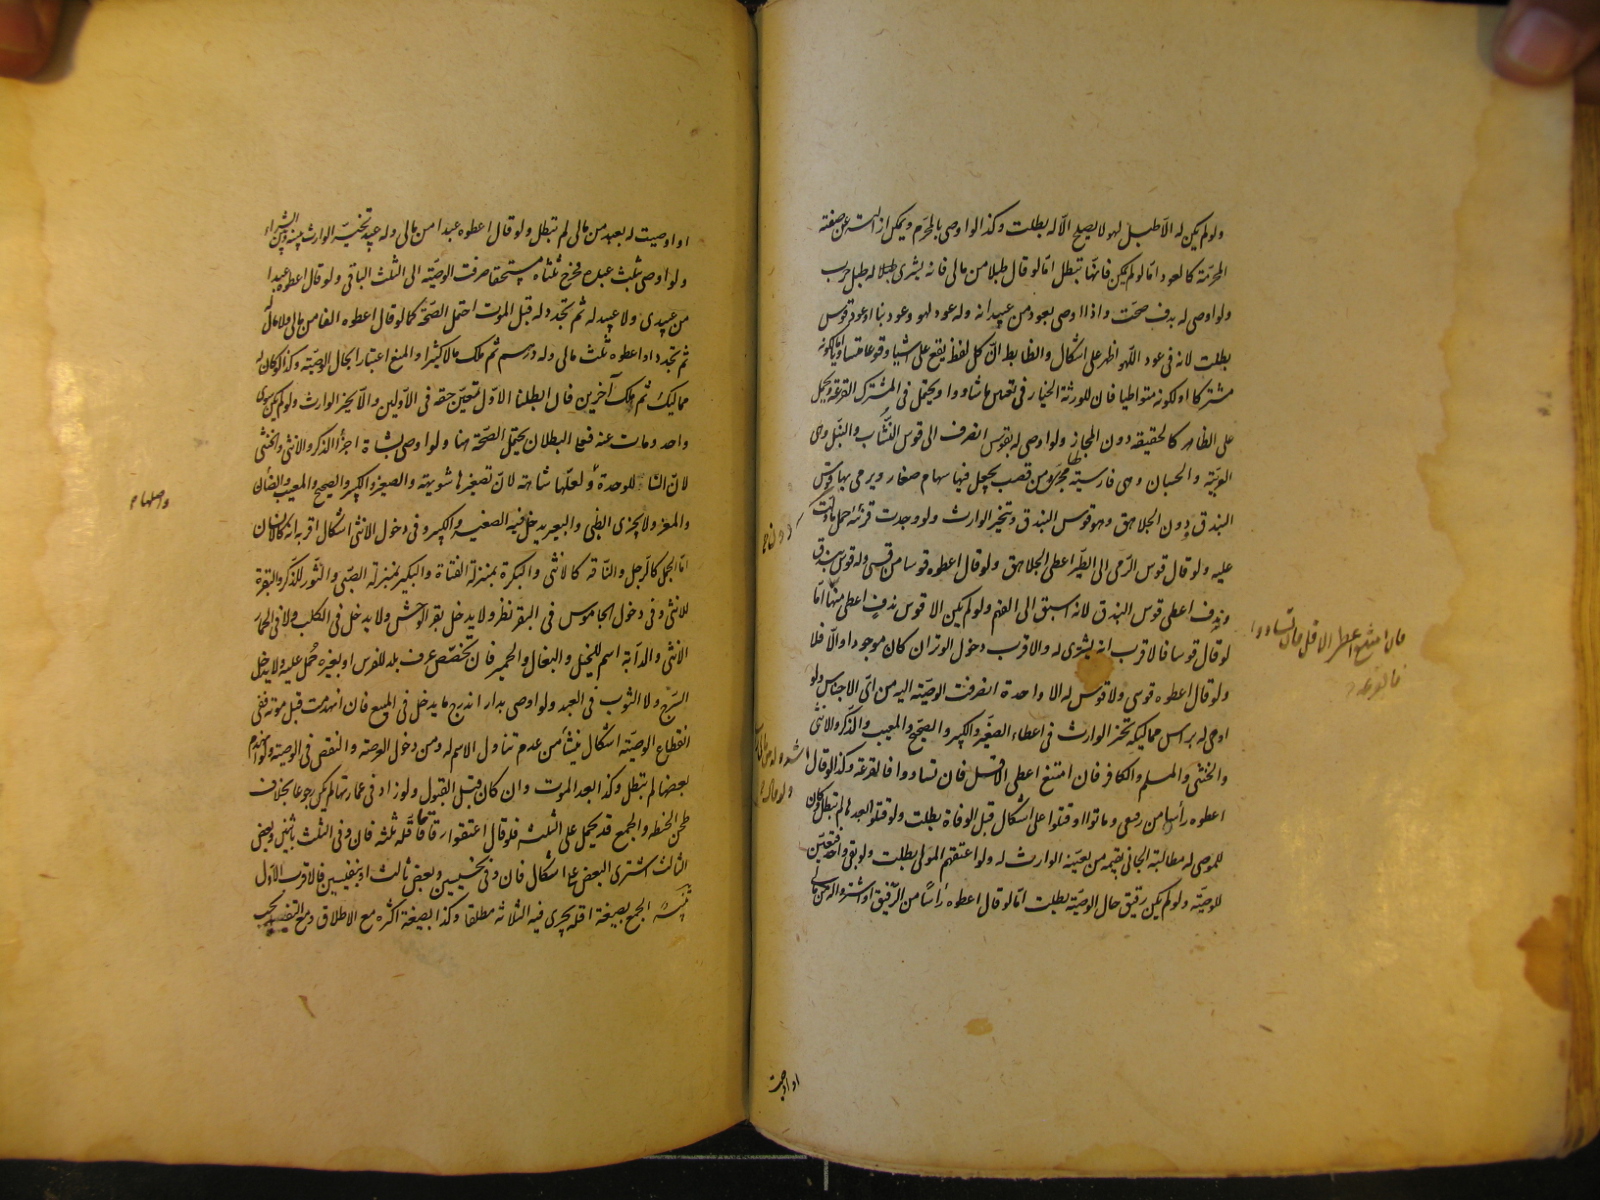 ولو لم يكن له الا طبل لهو لا يصلح الا له بطلت وكذا لو اوصى بالمحرم ويمكن ازالته عن صفته
المحرمة كالعود امّا لو لم يكن فانّها تبطل امّا لو قال طبلا من مالى فانه يشترى طبلا له طبل حرب
ولو اوصى له بدف صحت واذا اوصى بعود من عيدانه وله عود لهو وعود بنا او عود قوس
بطلت لانه فى عود اللّهو اظهر على اشكال والضابط انّ كل لفظ يقع على اشيا وقوعا متساويا امّا لكونه
مشتركا او لكونه متواطيا فان للورثة الخيار فى تعيين ما شاووا ويحتمل فى المشترك القرعة ويحمل
على الظاهر كالحقيقه دون المجاز ولو اوصى له بقوس انصرف الى قوس النشّاب والنبل وهى
العربيّة والحسبان وهى فارسيّة مجراة من قصب يجعل فيها سهام صغار ويرمى بها وقوس
البندق دون الجلاهق وهو قوس البندق ويتخير الوارث ولو وجدت قرينة حمل ما دلت
عليه ولو قال قوس الرّمى الى الطّير اعطى الجلاهق ولو قال اعطوه قوسا من قسى وله قوس بندق
وندف اعطى قوس البندق لانه اسبق الى الفهم ولو لم يكن الا قوس ندف اعطى منها امّا
لو قال قوسا فالاقرب انه يشترى له والاقرب دخول الوتر ان كان موجودا والّا فلا
ولو قال اعطوه قوسى ولا قوس له الا واحدة انصرفت الوصيّة اليه من اىّ الاجناس ولو
اوصى له براس من مماليكه تخير الوارث فى اعطاء الصغير والكبير والصحيح والمعيب والذكر والانثى
والخنثى والمسلم والكافر فان امتنع اعطى الاقل فان تساووا فالقرعة وكذا لو قال
اعطوه رأسا من رقيقى وماتوا او قتلوا على اشكال قبل الوفاة بطلت ولو قتلوا بعدها لم تبطل وكان
للموصى له مطالبة الجانى بقيمه من يعينه الوارث له ولو اعتقهم المولى بطلت ولو بقى واحد تعيّن
للوصيّة ولو لم يكن رقيق حال الوصيّة بطلت امّا لو قال اعطوه رأسًا من الرّقيق او اشتروا له من مالى
فان امتنع اعطى الاقل فان تساووا
فالقرعة
او اوصيت
او اوصيت له بعبد من مالى لم تبطل ولو قال اعطوه عبدا من مالى وله عبيد تخيّر الوارث بينه وبين الشراء
ولو اوصى بثلث عبده فخرج ثلثاه مستحقا صرفت الوصيّة الى الثلث الباقى ولو قال اعطوه عبدا
من عبيدى ولا عبيد له ثم تجدد له قبل الموت احتمل الصحّة كما لو قال اعطوه الفا من مالى ولا مال له
ثم تجدد او اعطوه ثلث مالى وله درهم ثم ملك مالا كثيرا والمنع اعتبارا بحال الوصيّة وكذا لو كان له
مماليك ثم ملك آخرين فان ابطلنا الاوّل تعيّن حقه فى الاوّلين والّا تخير الوارث ولو لم يكن سوى
واحد ومات عنه فعلى البطلان يحتمل الصّحة هنا ولو اوصى بشاة اجزأ الذكر والانثى والخنثى
لانّ التا للوحدة ولعلّها شاهة لانّ تصغيرها شويهة والصغير والكبير والصحيح والمعيب والضأن
والمعز ولا يجزى الظبى والبعير يدخل فيه الصغير والكبير وفى دخول الانثى اشكال اقربه انه كالانسان
امّا الجمل كالرّجل والنّاقة كالانثى والبكرة بمنزلة الفتاة والبكر بمنزلة الصّبى والثّور للذكر والبقرة
للانثى وفى دخول الجاموس فى البقر نظر ولا يدخل بقر الوحش ولا يدخل فى الكلب ولا فى الحمار
الانثى والدابة اسم للخيل والبغال والحمير فان تخصّص عرف بلد للفرس او بغيره حمل عليه ولا يدخل
السرج ولا الثوب فى العبد ولو اوصى بدار اندرج ما يدخل فى المبيع فان انهدمت قبل موته ففى
انقطاع الوصيّة اشكال ينشأ من عدم تناول الاسم له ومن دخول العرصة والنقص فى الوصيّة ولو انهدم
بعضها لم تبطل وكذا بعد الموت وان كان قبل القبول ولو زاد فى عمارتها لم يكن رجوعا بخلاف
طحن الحنطه والجمع قد يحمل على الثلثة فلو قال اعتقوا رقابا فاقله ثلثه فان وفى الثلث باثنين وبعض
الثالث اشترى البعض على اشكال فان وفى بخسيسين وبعض ثالث او بنفيسين فالاقرب الاوّل
تنبيه الجمع بصيغة اقله يجرى فيه الثلاثة مطلقا وكذا بصيغة اكثره مع الاطلاق ومع التقييد يجب
واصلها